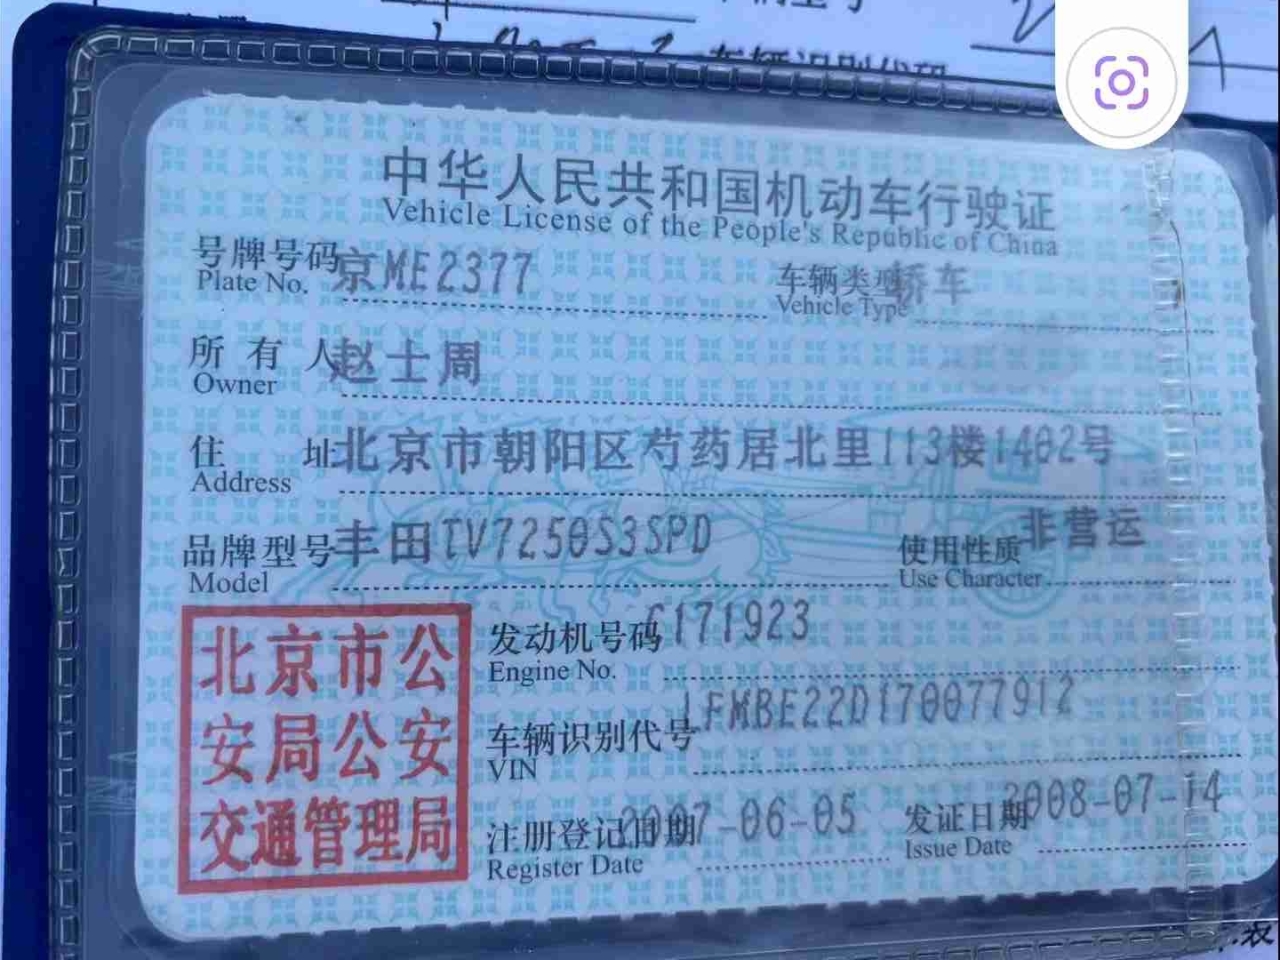 车辆识别代码
中华人民共和国机动车行驶证
Vehicle License of the People's Republic of China
号牌号码 京ME2377 车辆类型 轿车
Plate No. Vehicle Type
所有人 赵士周
Owner
住址 北京市朝阳区芍药居北里113楼1402号
Address
品牌型号 丰田TV7250S3SPD 使用性质 非营运
Model Use Character
发动机号码 C171923
Engine No.
车辆识别代号 LFMBE22D170077912
VIN
注册登记日期 2007-06-05 发证日期 2008-07-14
Register Date Issue Date
北京市公
安局公安
交通管理局